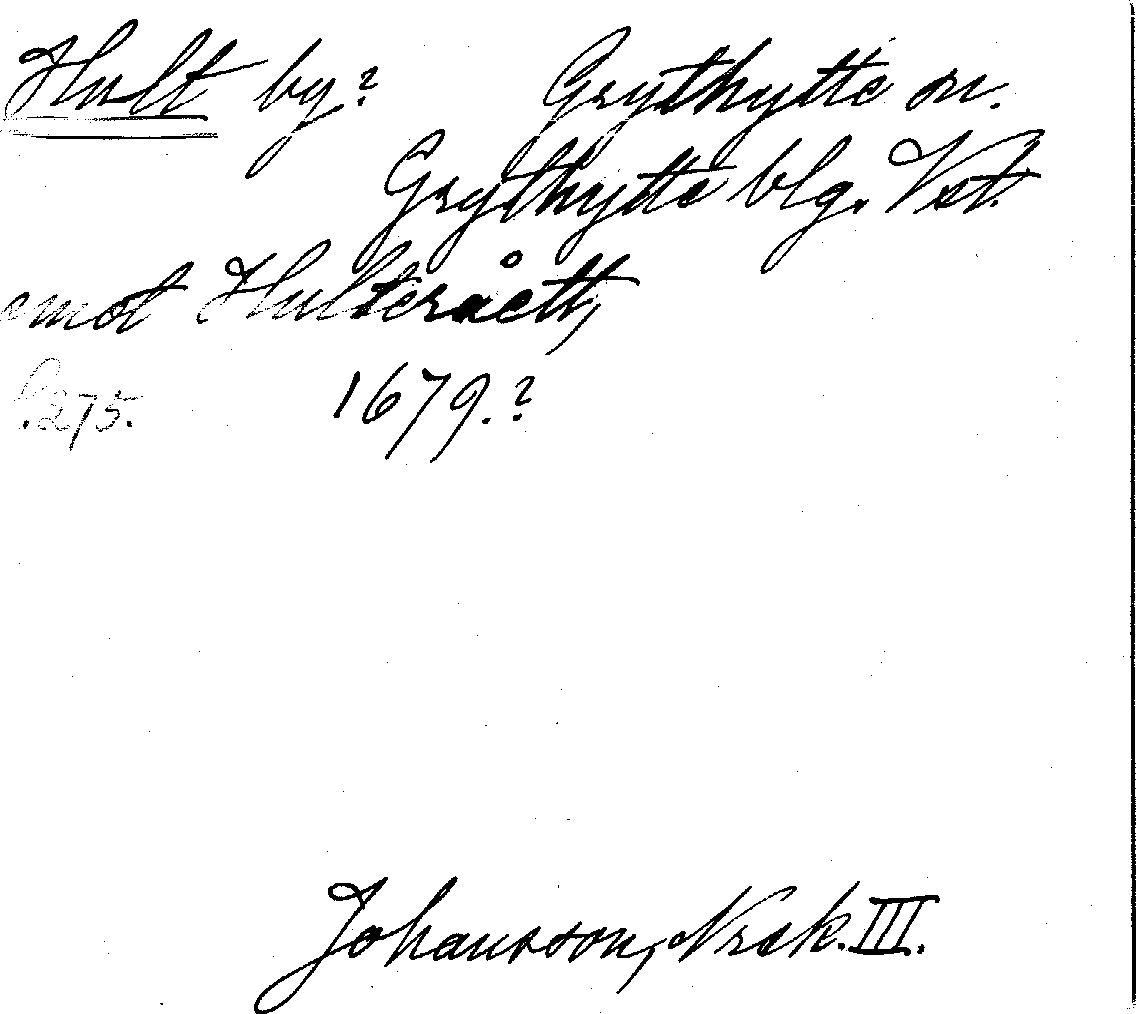 Hult by? Grythytte sn.
Grythytte blg. Vstl.
emot Hulteråeth,
s. 275. 1679.?
Johansson, Nrsk. III.